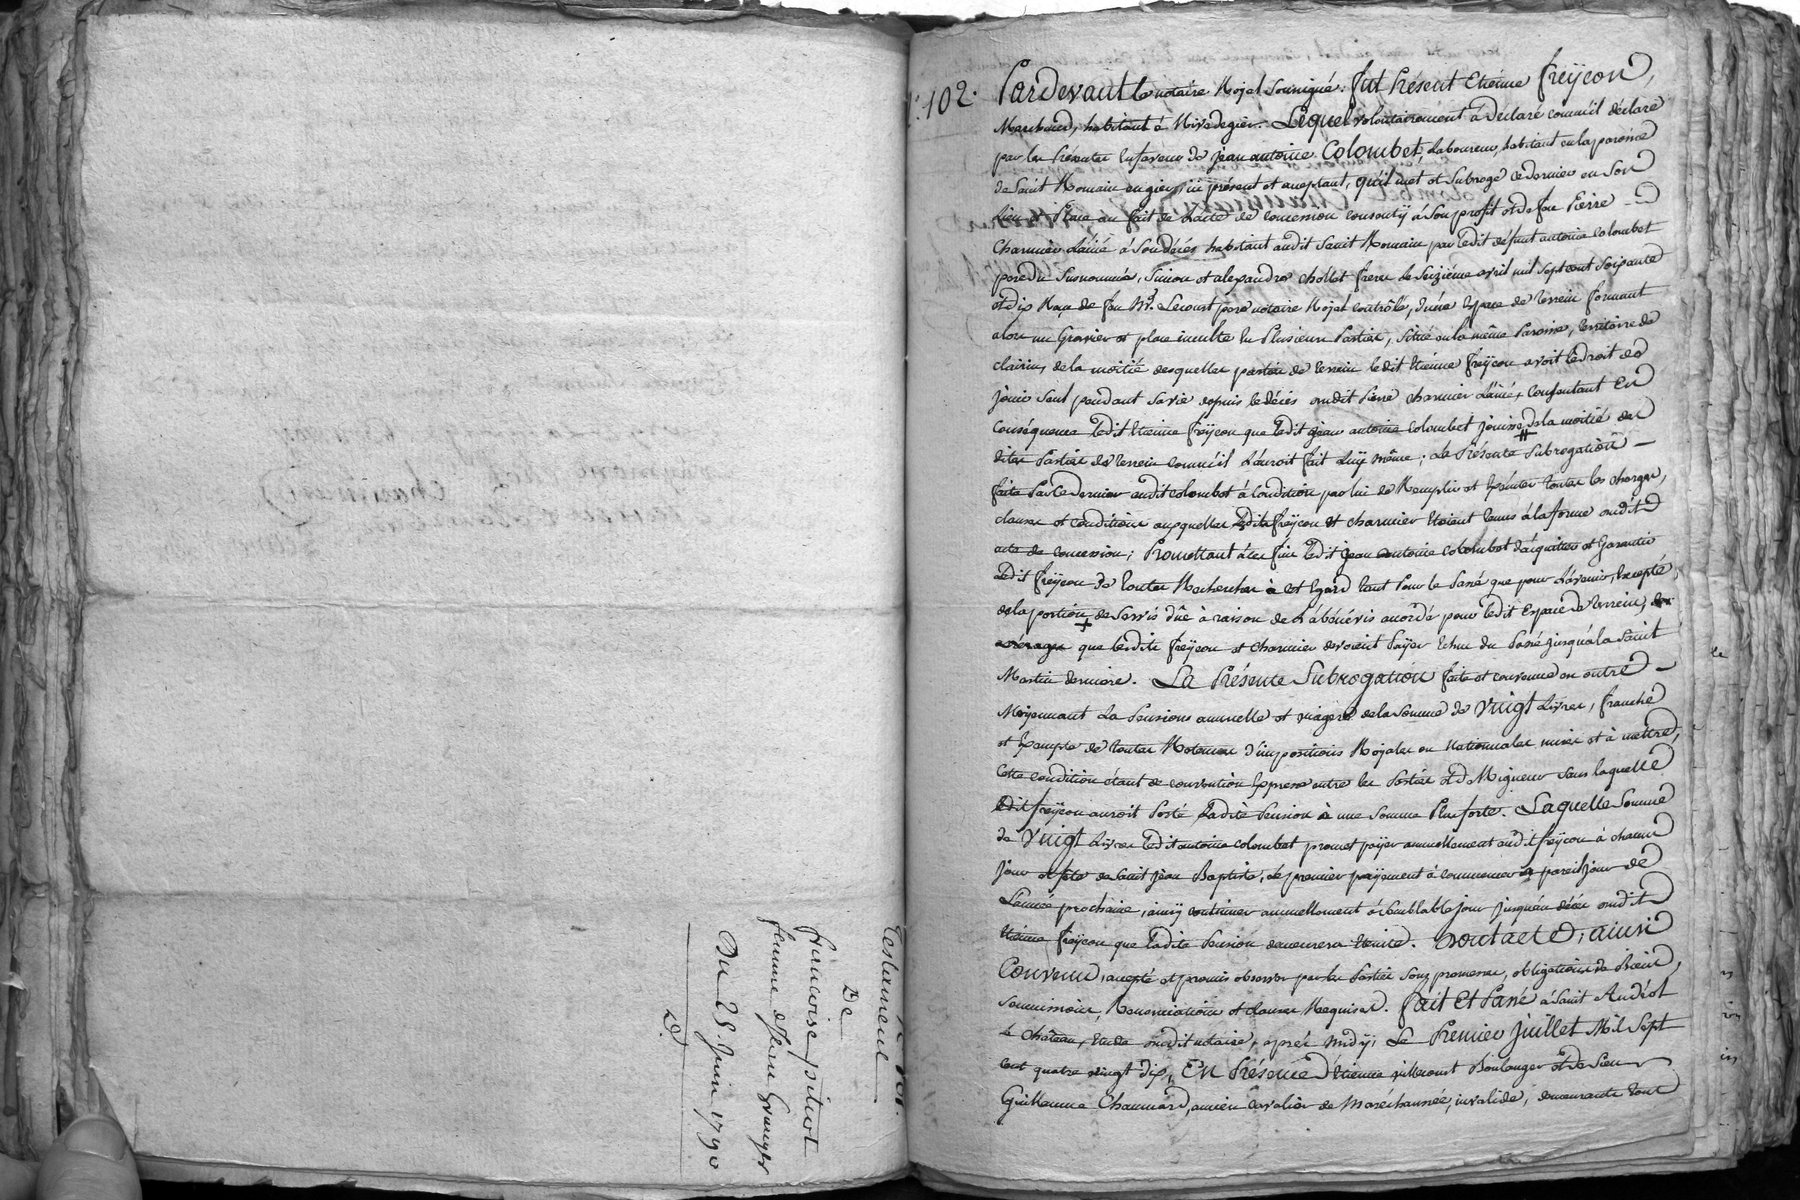 N.° 101.
Testament
De
françoise pitiot
femme de pierre Granger
Du 25. Juin 1790
D.
N.° 102. Pardevant le notaire Royal Soussigné. fut Présent Etiénne freÿcon,
Marchand, habitant à Rivedegier. Lequel volontairement à Déclaré comm'il déclare
par les Présentes En faveur de Jean antoine Colombet, Laboureur, habitant en la paroisse
de Saint Romain en gier, ici présent et aceptant, qu'il met et Subroge ce dernier en Son
Lieu et Place au fait de L'acte de concession consentÿ à Son profit et de feu Pierre
Charmier L'ainé à Son décés habitant audit Saint Romain par ledit défunt antoine Colombet
pere du Susnommé, Simon et alexandre chollet freres le Seiziéme avril mil Sept cent Soixante
et dix Reçu de feu Mr. Lecourt pere notaire Royal contrôlé, d'une Espace de terrein formant
alors un Gravier et place inculte En Plusieurs Parties, Située en la même Paroisse, territoire de
clairin, de la moitié desquelles parties de terrein ledit Etiénne freÿcon avoit le droit de
Jouir Seul pendant Sa vie depuis le décés dudit Pierre charmier L'ainé, Consentant En
Conséquence ledit Etiénne freÿcon que ledit Jean antoine Colombet jouisse de la moitié des
dites Parties de terrein comm'il L'auroit fait Luÿ même; La Présente Subrogation
faite Par ce dernier audit Colombet à Condition par lui de Remplir et Exécuter toutes les charges,
clauses et conditions auxquelles lesdits freÿcon et charmier étoient tenus à la forme dudit
acte de concession; Promettant à ces fins ledit Jean antoine Colombet d'aquitter et Garantir
Ledit freÿcon de toutes Recherches à cet Egard tant Pour le Passé que pour L'avenir, Excepté,
de la portion de Servis dûe à raison de L'abénévis acordé pour ledit Espace de terrein,
arérages que lesdits freÿcon et Charmier devoient Paÿer Echus du Passé jusqu'à la Saint
Martin derniere. La Présente Subrogation faite et convenue en outre
Moÿennant La Pension annuelle et viagere de la Somme de Vingt Livres, franche
et Exempte de toutes Retenues d'impositions Roÿales ou Nationnales mises et à mettre,
Cette condition étant de convention Expresse entre les Parties et de Rigueur Sans laquelle
Ledit freÿcon auroit Porté Ladite Pension à une Somme Plus forte. Laquelle Somme
de Vingt Livres ledit antoine Colombet promet paÿer annuellement audit freÿcon à chacun
Jour et fête de Saint Jean Baptiste, Le premier paÿement à commencer à pareil jour de
L'année prochaine, ainsÿ continuer annuellement à Semblable jour jusqu'au décés dudit
Etiénne freÿcon que Ladite Pension demeurera Eteinte. Dont acte, ainsi
Convenu, acepté et promis observer par les Parties Sous promesses, obligations de Biens,
Soumissions, Renonciations et clauses Requises. fait Et Passé à Saint Andéol
le Château, Etude dudit notaire, aprés midÿ, Le Premier Juillet Mil Sept
Cent quatre vingt Dix, En Présence d'Etiénne villecourt Boulanger et de Sieur
Guillaume Chaumard, ancien Cavalier de Maréchaussée, invalide, demeurants tous